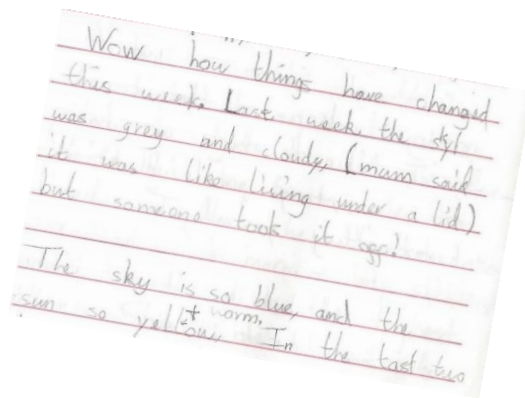 Wow how things have changed
this week. Last week the sky
was grey and cloudy, (mum said
it was like living under a lid)
but someone took it off!
The sky is so blue, and the
sun so yellow + warm. In the last two